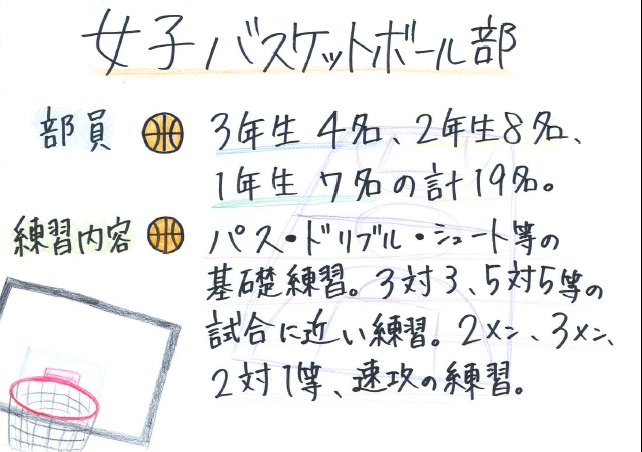 女子バスケットボール部
部員 3年生 4名、2年生8名、
1年生 7名の計19名。
練習内容 パス・ドリブル・シュート等の
基礎練習。3対3、5対5等の
試合に近い練習。2メン、3メン、
2対1等、速攻の練習。